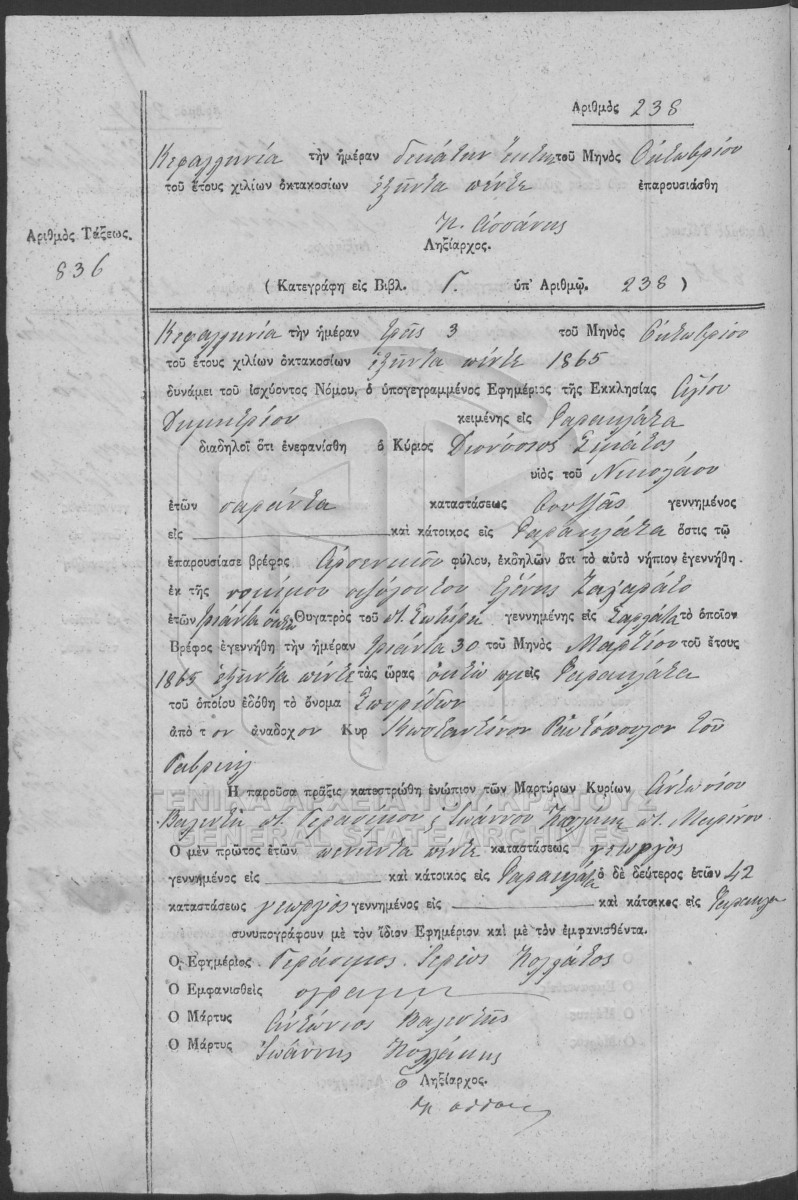 Ἀριθμὸς 238
Κεφαλληνία τὴν ἡμέραν δεκάτην ἕκτην τοῦ Μηνὸς Ὀκτωβρίου
τοῦ ἔτους χιλίων ὀκτακοσίων ἑξῆντα πέντε ἐπαρουσιάσθη
Ληξίαρχος.
Ἀριθμὸς Τάξεως.
836
( Κατεγράφη εἰς Βιβλ. Γ. ὑπ' Ἀριθμῷ. 238 )
Κεφαλληνία τὴν ἡμέραν τρεῖς 3 τοῦ Μηνὸς Ὀκτωβρίου
τοῦ ἔτους χιλίων ὀκτακοσίων ἑξῆντα πέντε 1865
δυνάμει τοῦ ἰσχύοντος Νόμου, ὁ ὑπογεγραμμένος Ἐφημέριος τῆς Ἐκκλησίας Ἁγίου
Δημητρίου κειμένης εἰς Φαρακλάτα
διαδηλοῖ ὅτι ἐνεφανίσθη ὁ Κύριος Διονύσιος Σιμάτος
υἱὸς τοῦ Νικολάου
ἐτῶν σαράντα καταστάσεως γεννημένος
εἰς καὶ κάτοικος εἰς Φαρακλάτα ὅστις τῷ
ἐπαρουσίασε βρέφος Ἀρσενικοῦ φύλου, ἐκδηλῶν ὅτι τὸ αὐτὸ νήπιον ἐγεννήθη
ἐκ τῆς νομίμου συζύγου του Ἑλένης Ζαχαράτο
ἐτῶν τριάντα ὀκτώ Θυγατρὸς τοῦ ποτ. Σωτήρη γεννημένης εἰς τὸ ὁποῖον
Βρέφος ἐγεννήθη τὴν ἡμέραν τριάντα 30 τοῦ Μηνὸς Μαρτίου τοῦ ἔτους
1865 ἑξῆντα πέντε τὰς ὥρας ὀκτὼ πμ εἰς Φαρακλάτα
τοῦ ὁποίου ἐδόθη τὸ ὄνομα Σπυρίδων
ἀπὸ τον ἀνάδοχον Κύρ Κωσταντῖνον Ραυτόπουλον τοῦ
Γαβριήλ
Ἡ παροῦσα πρᾶξις κατεστρώθη ἐνώπιον τῶν Μαρτύρων Κυρίων Ἀντωνίου
Βαλεντῆ ποτ. Γερασίμου & Ἰωάννου Κολάκη ποτ. Μαρίνου
Ὁ μὲν πρῶτος ἐτῶν πενῆντα πέντε καταστάσεως γεωργὸς
γεννημένος εἰς καὶ κάτοικος εἰς Φαρακλάτα ὁ δὲ δεύτερος ἐτῶν 42
καταστάσεως γεωργὸς γεννημένος εἰς καὶ κάτοικος εἰς Φαρακλάτα
συνυπογράφουν μὲ τὸν ἴδιον Ἐφημέριον καὶ μὲ τὸν ἐμφανισθέντα.
Ὁ Ἐφημέριος Γεράσιμος Ἱερεὺς
Ὁ Ἐμφανισθεὶς
Ὁ Μάρτυς Ἀντώνιος Βαλεντῆς
Ὁ Μάρτυς Ἰωάννης Κολλάκης
Ὁ Ληξίαρχος.
ΓΕΝΙΚΑ ΑΡΧΕΙΑ ΤΟΥ ΚΡΑΤΟΥΣ
GENERAL STATE ARCHIVES